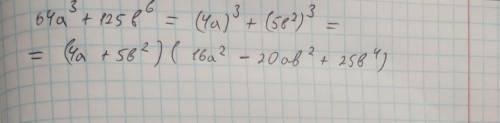 64a³ + 125b⁶ = (4a)³ + (5b²)³ =
= (4a + 5b²) (16a² − 20ab² + 25b⁴)